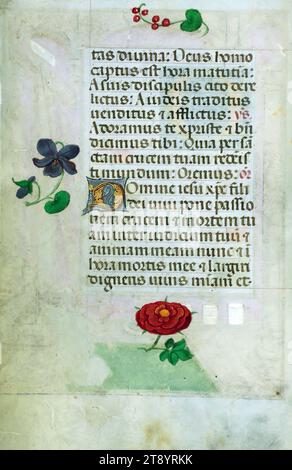 tas diuina: Deus homo
captus est hora matutīa:
A suis discipulis cito dere
lictus: A iudeis traditus
uenditus et afflictus: ꝟs
Adoramus te xpriste et bn̄
dicimus tibi: Quia per sc̄
tam crucem tuam redeis
ti mundum: Oremus: or
Domine iesu xp̄e fili
dei uiui pone passio
nem crucem et mortem tu
am inter iudicium tuū et
animam meam nunc et ī
hora mortis mee et largiri
digneris uiuis mīam et
alamy
Image ID: 2T8YRKK
www.alamy.com